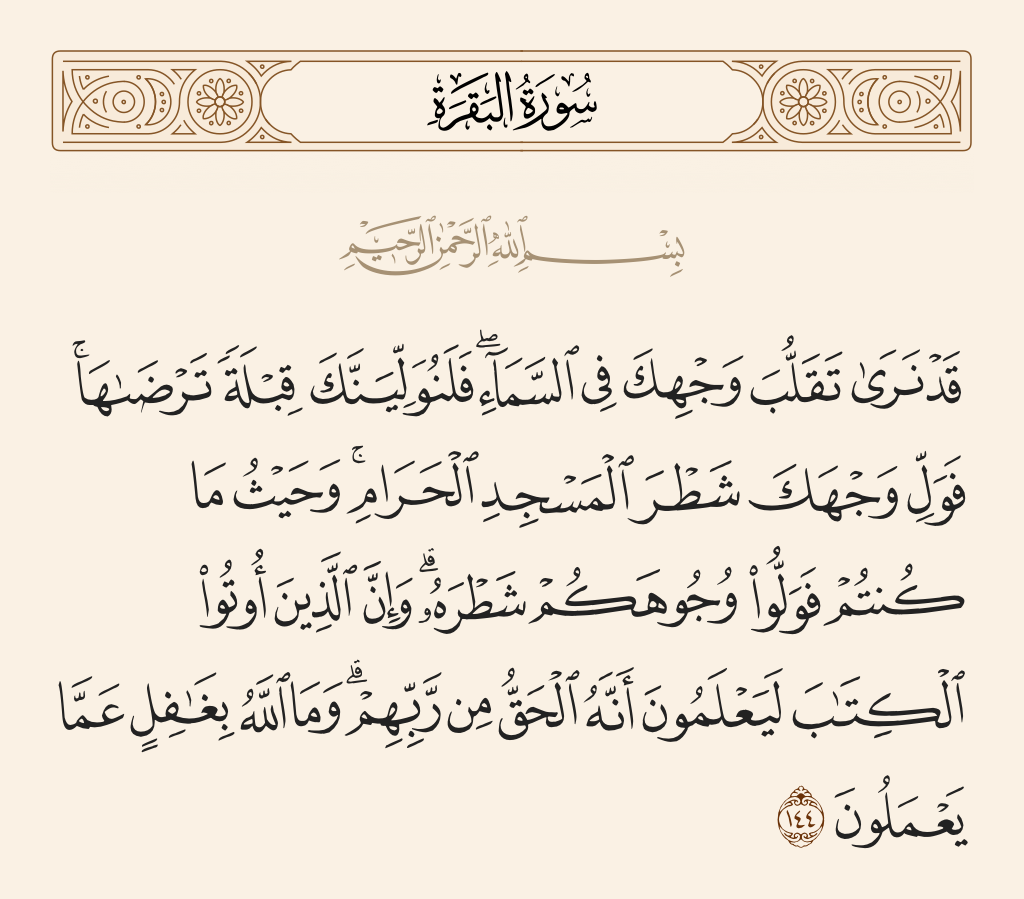 سُورَةُ البَقَرَةِ
بِسْمِ ٱللَّهِ ٱلرَّحْمَٰنِ ٱلرَّحِيمِ
قَدْ نَرَىٰ تَقَلُّبَ وَجْهِكَ فِى ٱلسَّمَآءِ ۖ فَلَنُوَلِّيَنَّكَ قِبْلَةً تَرْضَىٰهَا ۚ
فَوَلِّ وَجْهَكَ شَطْرَ ٱلْمَسْجِدِ ٱلْحَرَامِ ۚ وَحَيْثُ مَا
كُنتُمْ فَوَلُّوا۟ وُجُوهَكُمْ شَطْرَهُۥ ۗ وَإِنَّ ٱلَّذِينَ أُوتُوا۟
ٱلْكِتَٰبَ لَيَعْلَمُونَ أَنَّهُ ٱلْحَقُّ مِن رَّبِّهِمْ ۗ وَمَا ٱللَّهُ بِغَٰفِلٍ عَمَّا
يَعْمَلُونَ ١٤٤